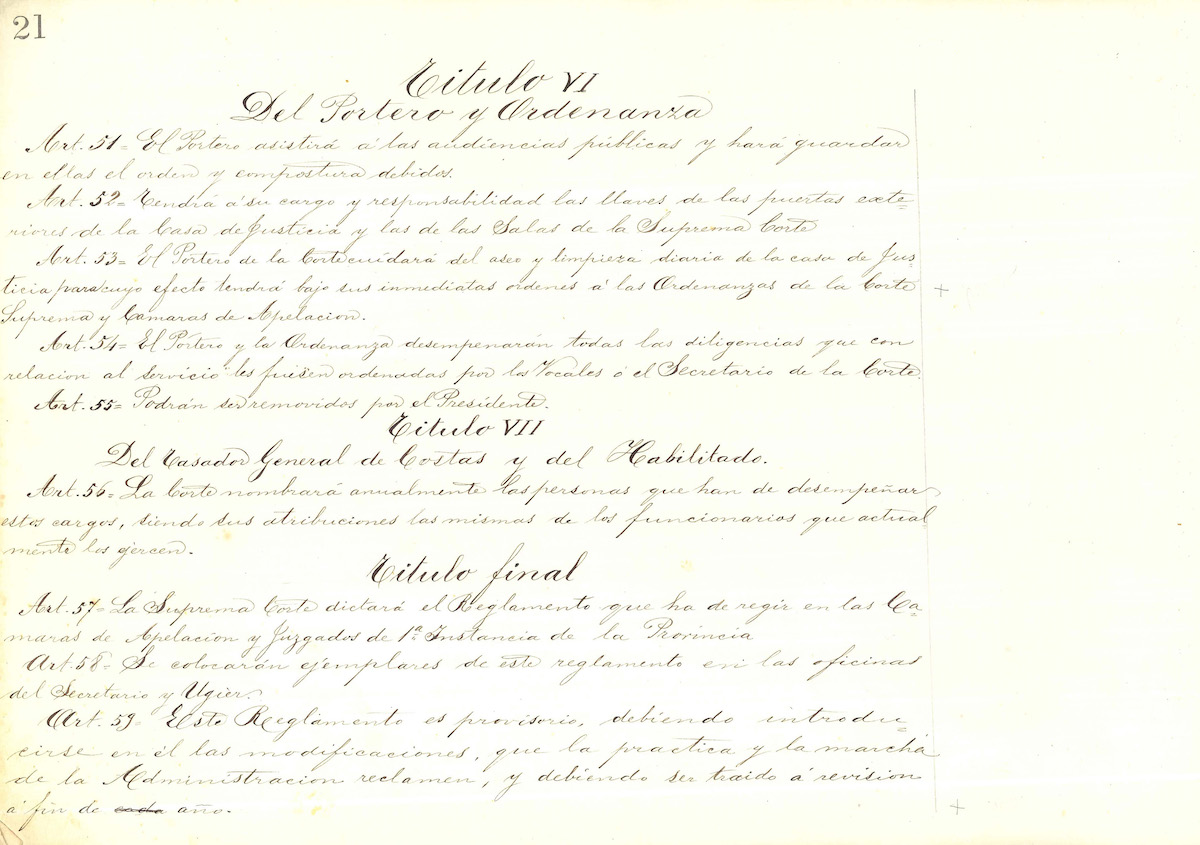 21
Titulo VI
Del Portero y Ordenanza
Art. 51= El Portero asistirá á las audiencias públicas y hará guardar
en ellas el orden y compostura debidos.
Art. 52= Tendrá á su cargo y responsabilidad las llaves de las puertas exte=
riores de la Casa de Justicia y las de las Salas de la Suprema Corte
Art. 53= El Portero de la Corte cuidará del aseo y limpieza diaria de la casa de Jus=
ticia para cuyo efecto tendrá bajo sus inmediatas ordenes á las Ordenanzas de la Corte
Suprema y Camaras de Apelacion.
Art. 54= El Portero y la Ordenanza desempenarán todas las diligencias que con
relacion al servicio les fuesen ordenadas por los Vocales ó el Secretario de la Corte.
Art. 55= Podrán ser removidos por el Presidente.
Titulo VII
Del Tasador General de Costas y del Habilitado.
Art. 56= La Corte nombrará anualmente las personas que han de desempeñar
estos cargos, siendo sus atribuciones las mismas de los funcionarios que actual
mente los ejercen.
Titulo final
Art. 57= La Suprema Corte dictará el Reglamento que ha de regir en las Ca=
maras de Apelacion y Juzgados de 1ª Instancia de la Provincia
Art. 58= Se colocarán ejemplares de este reglamento en las oficinas
del Secretario y Ugier.
Art. 59= Este Reglamento es provisorio, debiendo introdu=
cirse en él las modificaciones, que la practica y la marcha
de la Administracion reclamen, y debiendo ser traido á revision
á fin de cada año.